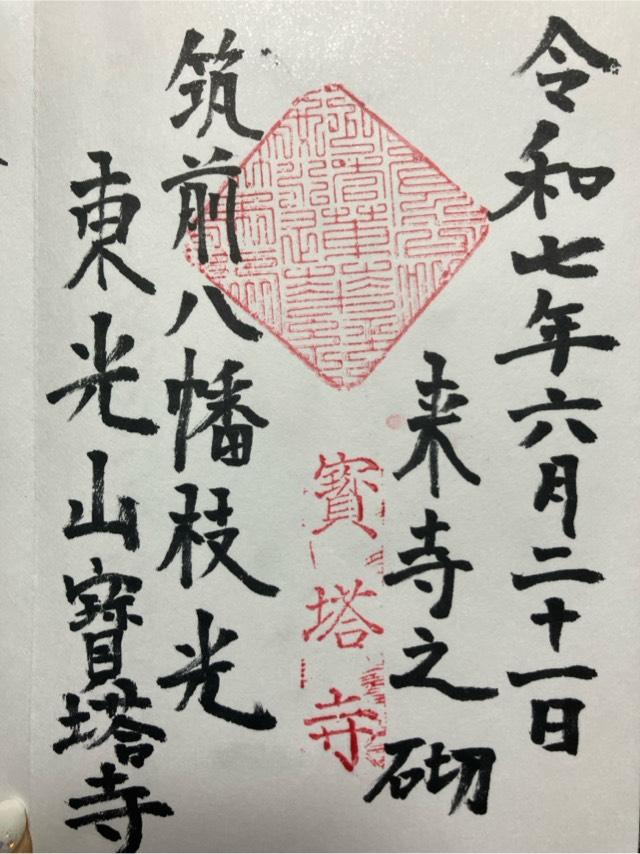 令和七年六月二十一日
来寺之砌
寳塔寺
筑前八幡枝光
東光山寳塔寺